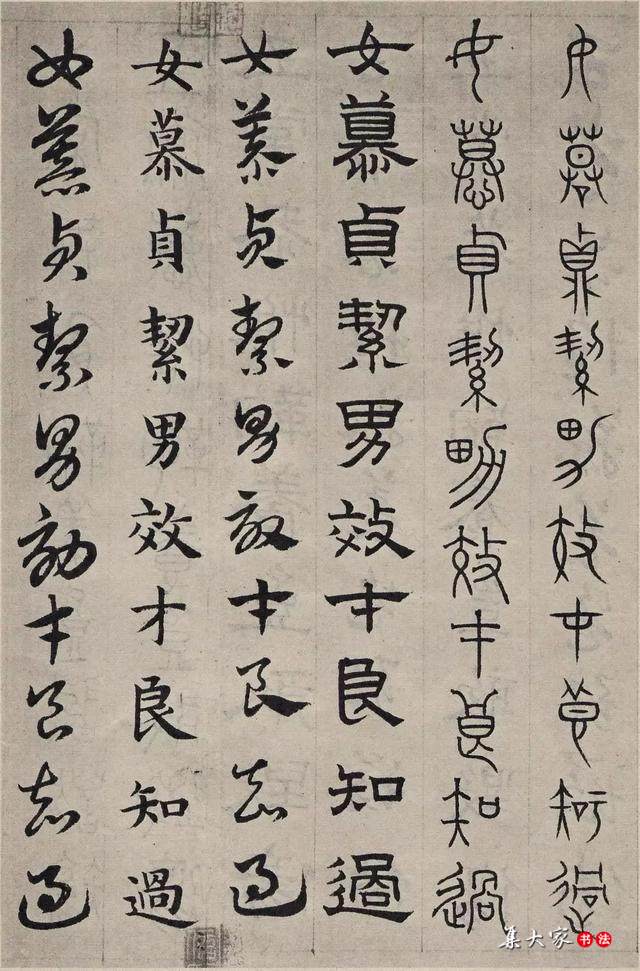 女慕貞絜男效才良知過
女慕貞絜男效才良知過
女慕貞絜男效才良知過
女慕貞絜男效才良知過
女慕貞絜男效才良知過
女慕貞絜男效才良知過
集大家书法